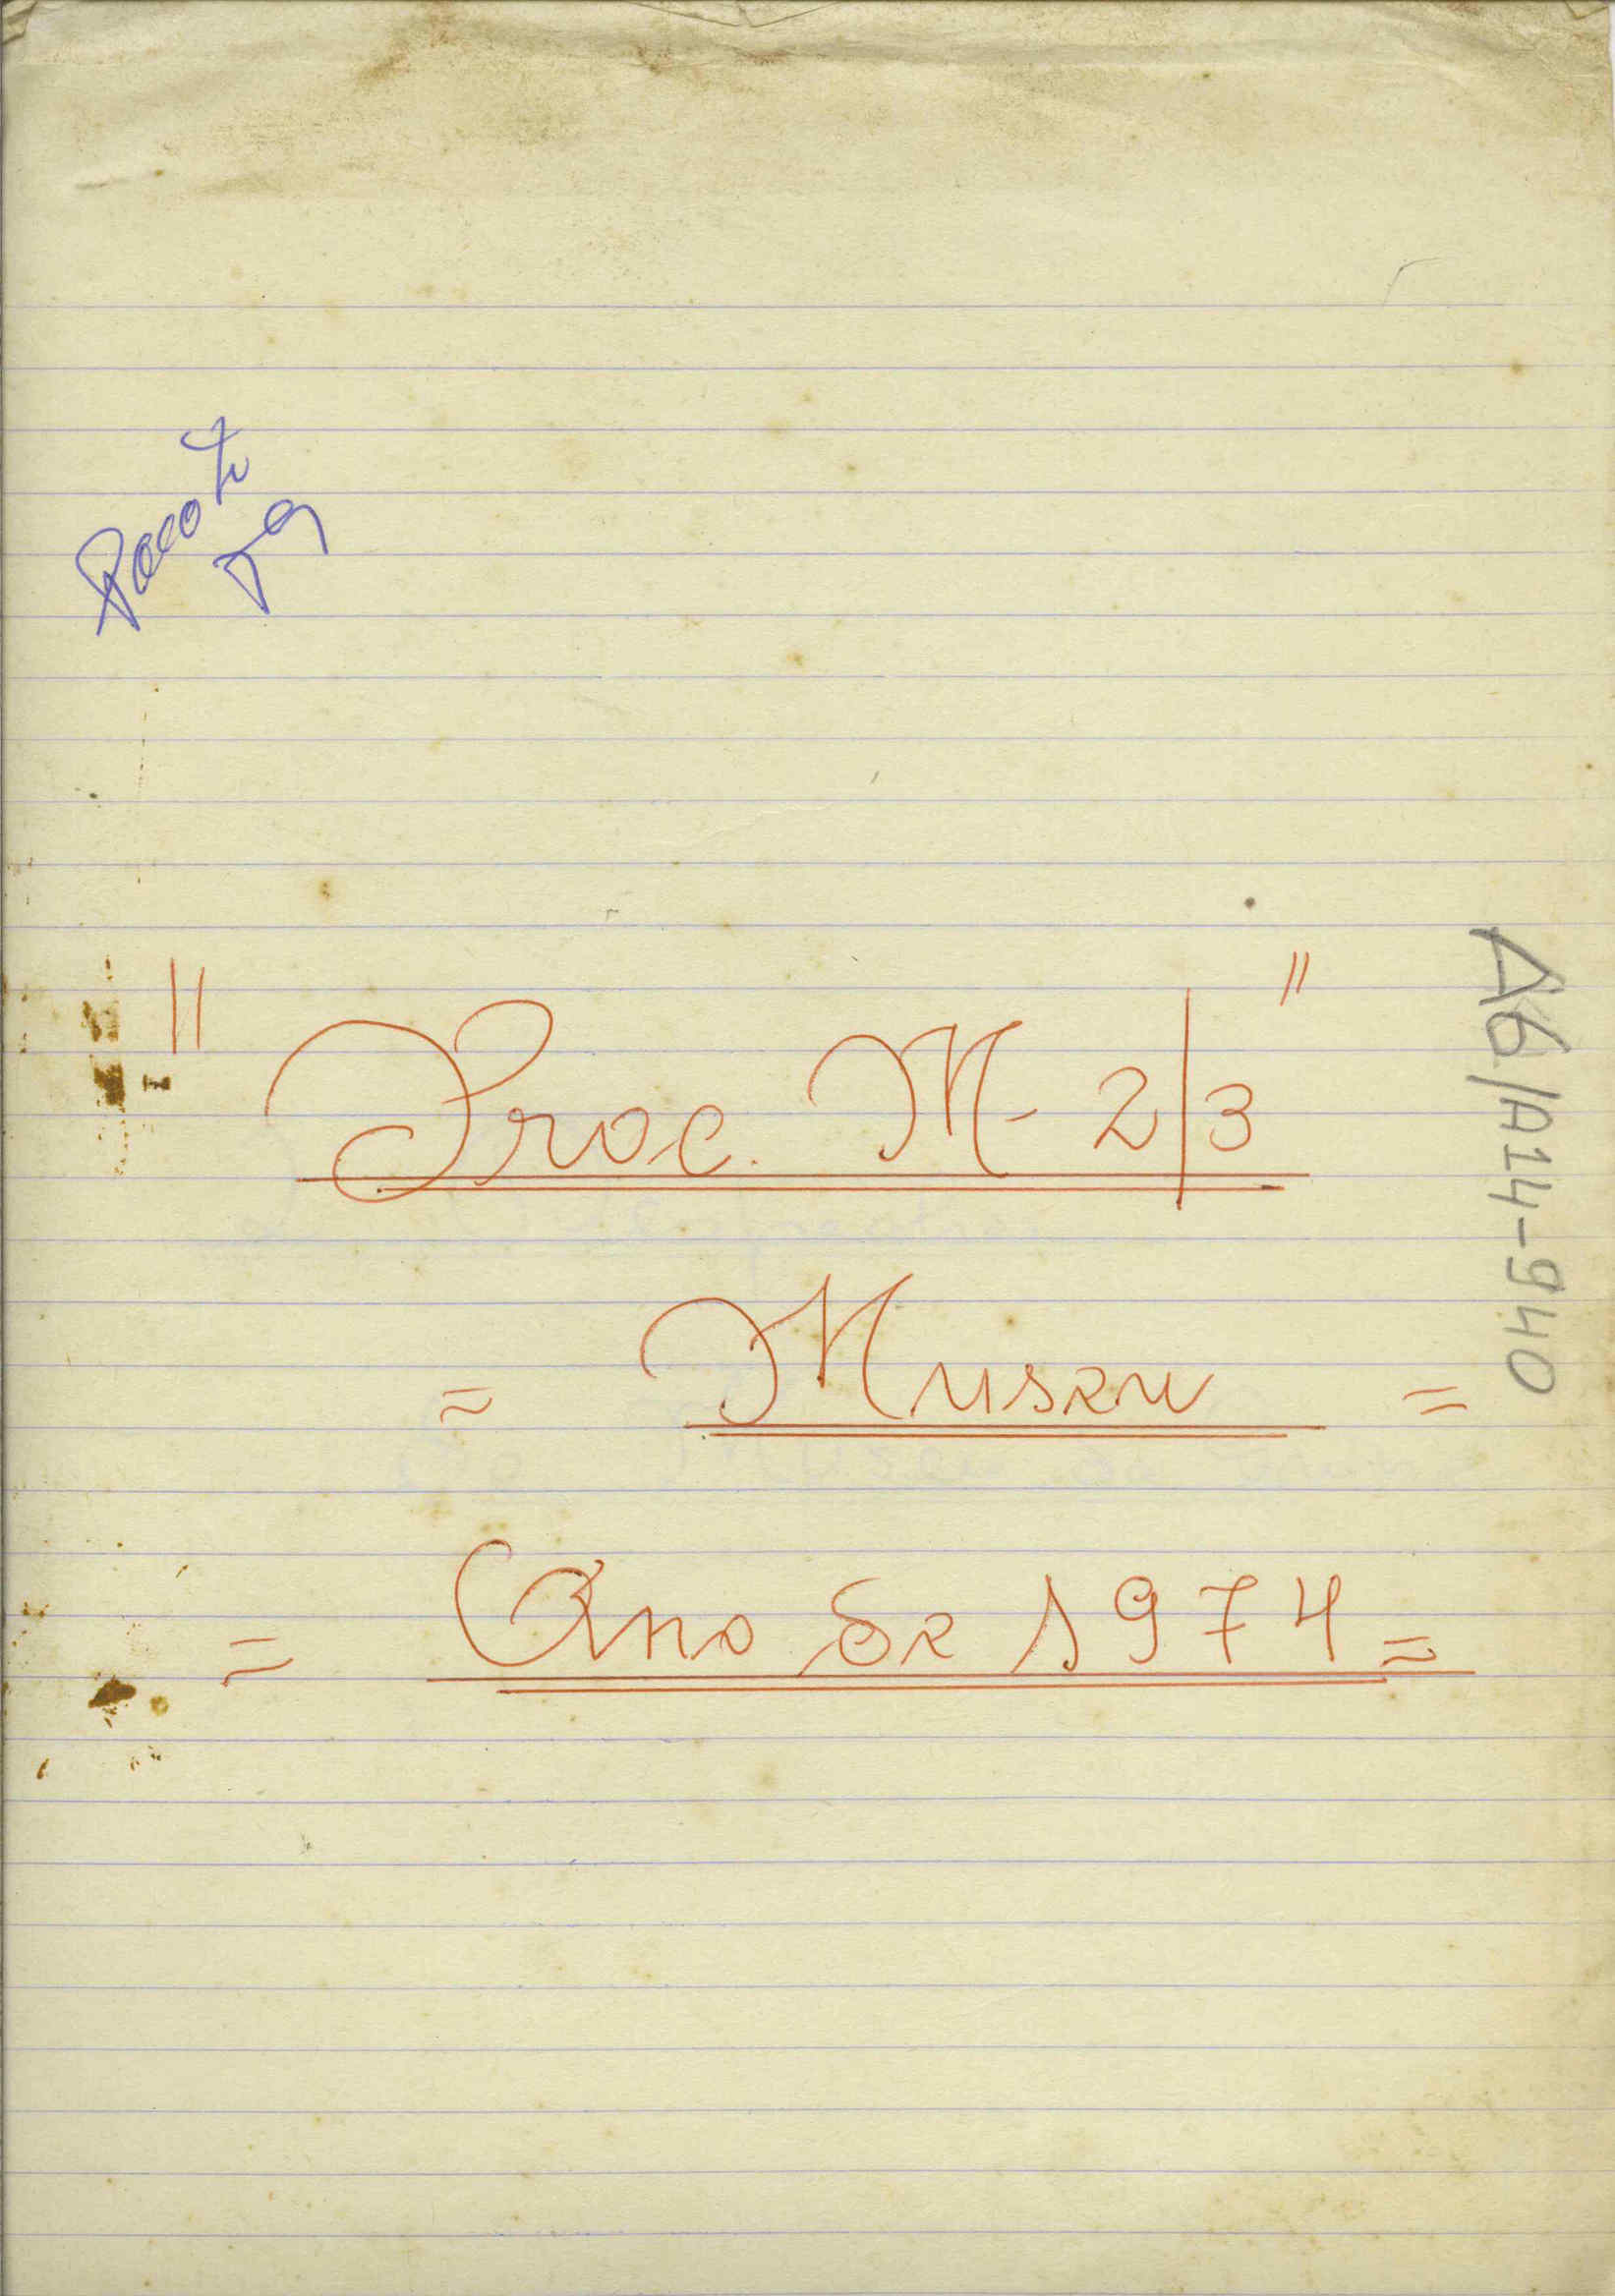 Pacote
79
" Proc. M- 2/3 "
= Museu =
= Ano de 1974 =
A6/A14-940